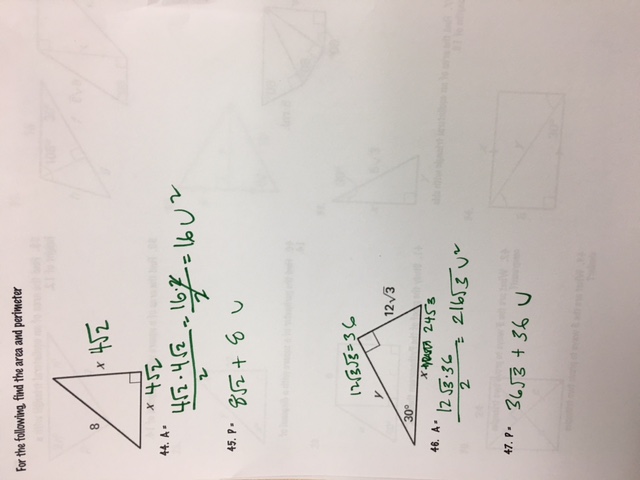 For the following, find the area and perimeter
8
x 4√2
x 4√2
44. A = 4√2·4√2/2 = 16·2/2 = 16 U²
45. P = 8√2 + 8 U
12√3√3 = 36
y
12√3
30°
x 24√3
46. A = 12√3·36/2 = 216√3 U²
47. P = 36√3 + 36 U